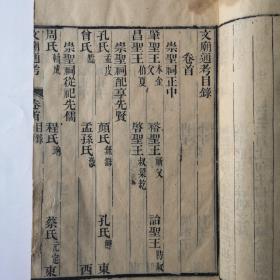 文廟通考目錄
卷首
崇聖祠正中
肇聖王 木金父 裕聖王 祈父 詒聖王 防叔
昌聖王 伯夏 啓聖王 叔梁紇
崇聖祠配享先賢
孔氏 孟皮 顏氏 無繇 孔氏 鯉 東
曾氏 點 孟孫氏 激 西
崇聖祠從祀先儒
周氏 輔成 程氏 珦 蔡氏 元定 東
文廟通考 卷首目錄